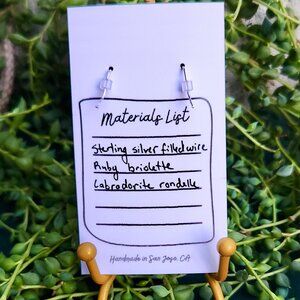 Materials List
Sterling silver filled wire
Ruby briolette
Labradorite rondelle
Handmade in San Jose, CA